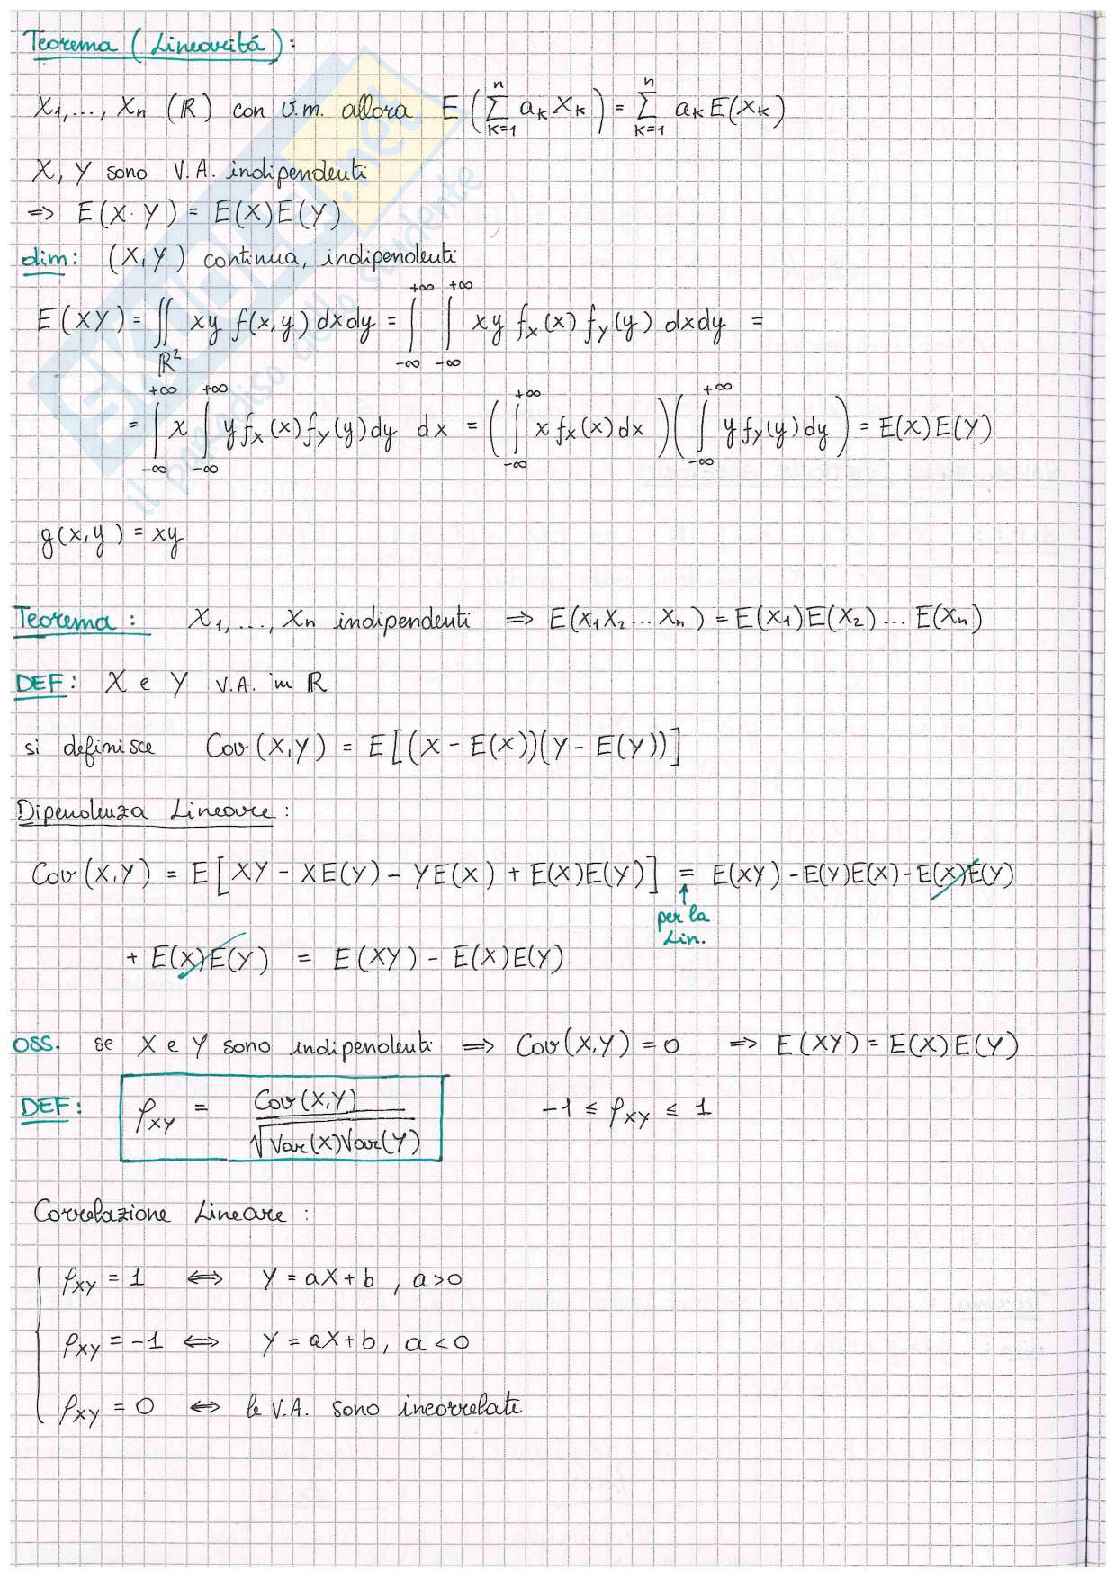 Teorema (Linearitá):
X₁,..., Xₙ (ℝ) con v.m. allora E(∑ₖ₌₁ⁿ aₖXₖ) = ∑ₖ₌₁ⁿ aₖE(Xₖ)
X, Y sono V.A. indipendenti
=> E(X·Y) = E(X)E(Y)
dim: (X,Y) continua, indipendenti
E(XY) = ∬_ℝ² xy f(x,y) dxdy = ∫₋∞⁺∞ ∫₋∞⁺∞ xy fₓ(x) fᵧ(y) dxdy =
= ∫₋∞⁺∞ x ∫₋∞⁺∞ y fₓ(x) fᵧ(y) dy dx = (∫₋∞⁺∞ x fₓ(x) dx)(∫₋∞⁺∞ y fᵧ(y) dy) = E(X)E(Y)
g(x,y) = xy
Teorema: X₁,..., Xₙ indipendenti => E(X₁X₂...Xₙ) = E(X₁)E(X₂)... E(Xₙ)
DEF: X e Y V.A. in ℝ
si definisce Cov(X,Y) = E[(X - E(X))(Y - E(Y))]
Dipendenza Lineare:
Cov(X,Y) = E[XY - XE(Y) - YE(X) + E(X)E(Y)] = E(XY) - E(Y)E(X) - E(X)E(Y)
↑
per la
Lin.
+ E(X)E(Y) = E(XY) - E(X)E(Y)
OSS. se X e Y sono indipendenti => Cov(X,Y) = 0 => E(XY) = E(X)E(Y)
DEF: ρ_XY = Cov(X,Y) / √Var(X)Var(Y) -1 ≤ ρ_XY ≤ 1
Correlazione Lineare:
ρ_XY = 1 <=> Y = aX+b, a>0
ρ_XY = -1 <=> Y = aX+b, a<0
ρ_XY = 0 <=> le V.A. sono incorrelate